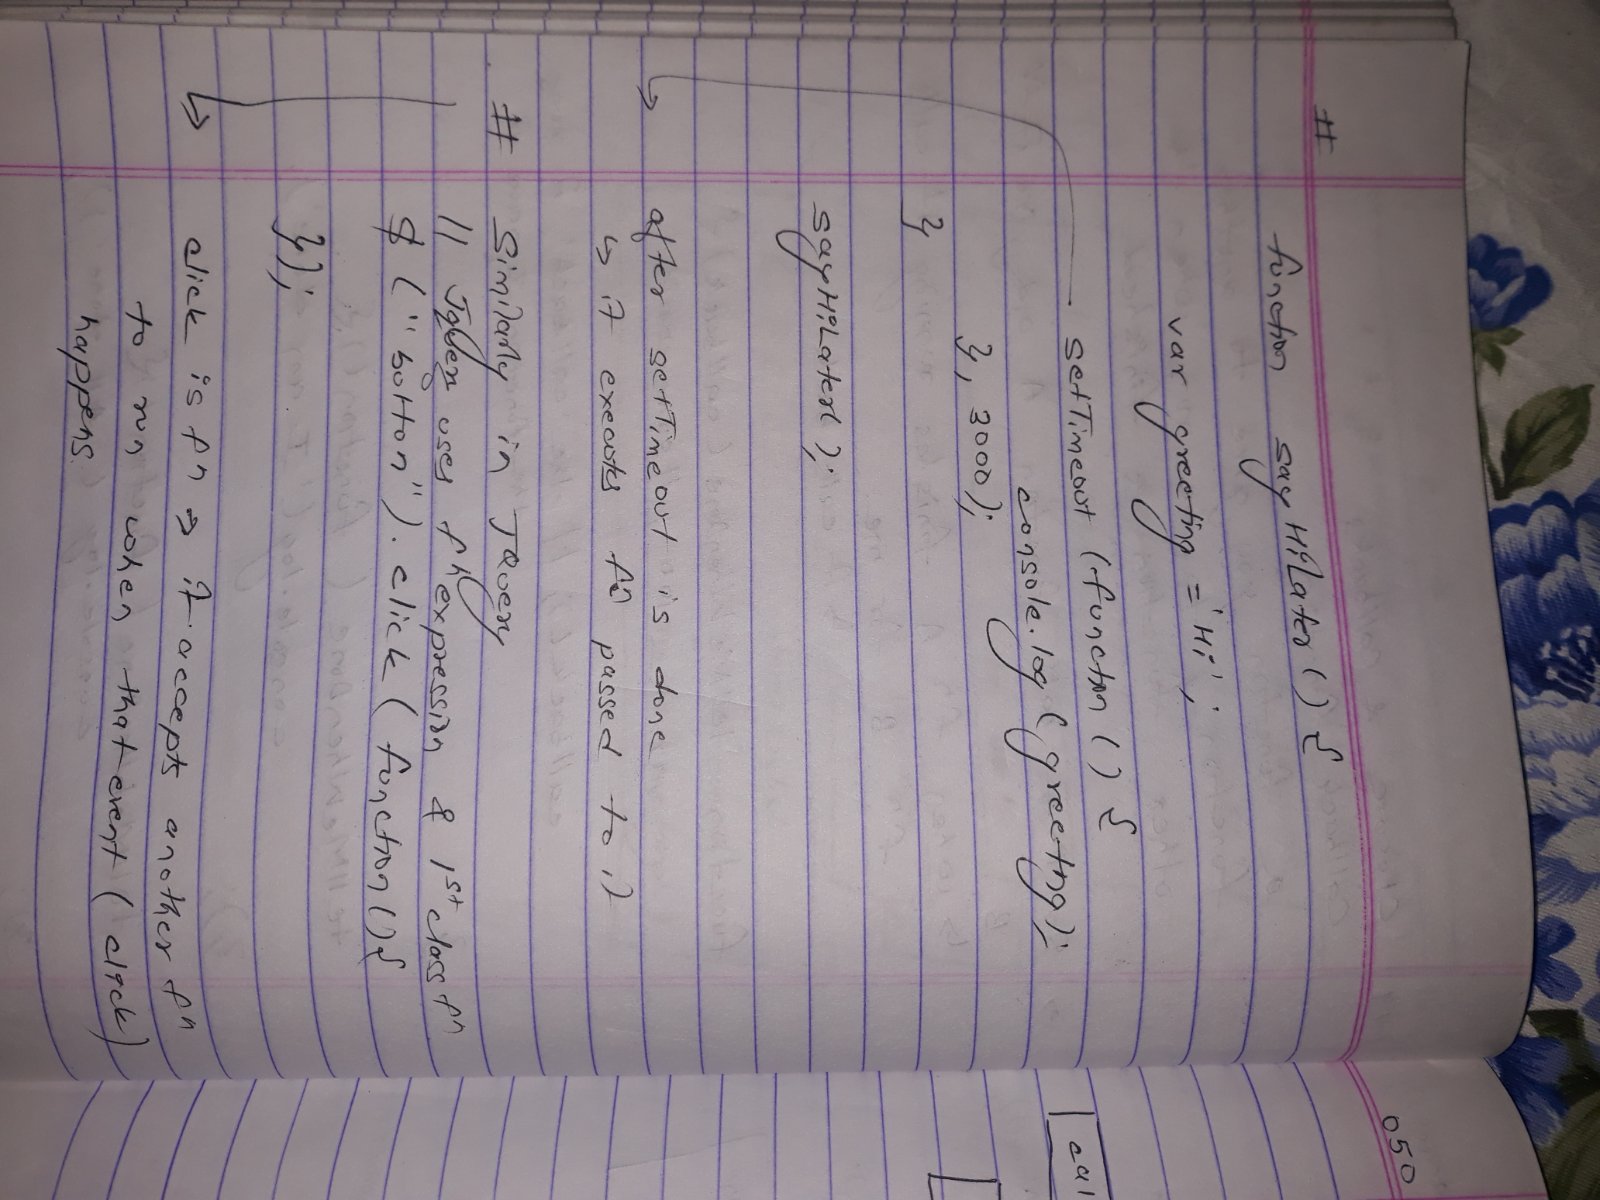 050
#
function sayHiLater () {
var greeting = 'Hi' ;
setTimeout (function () {
console.log (greeting);
}, 3000);
}
sayHiLater( );
after setTimeout is done
↳ it executes fn passed to it
# Similarly in JQuery
// Jquery uses fn expression & 1st class fn
$ ("button").click ( function () {
});
click is fn → it accepts another fn
to run when that event ( click )
happens.
cal